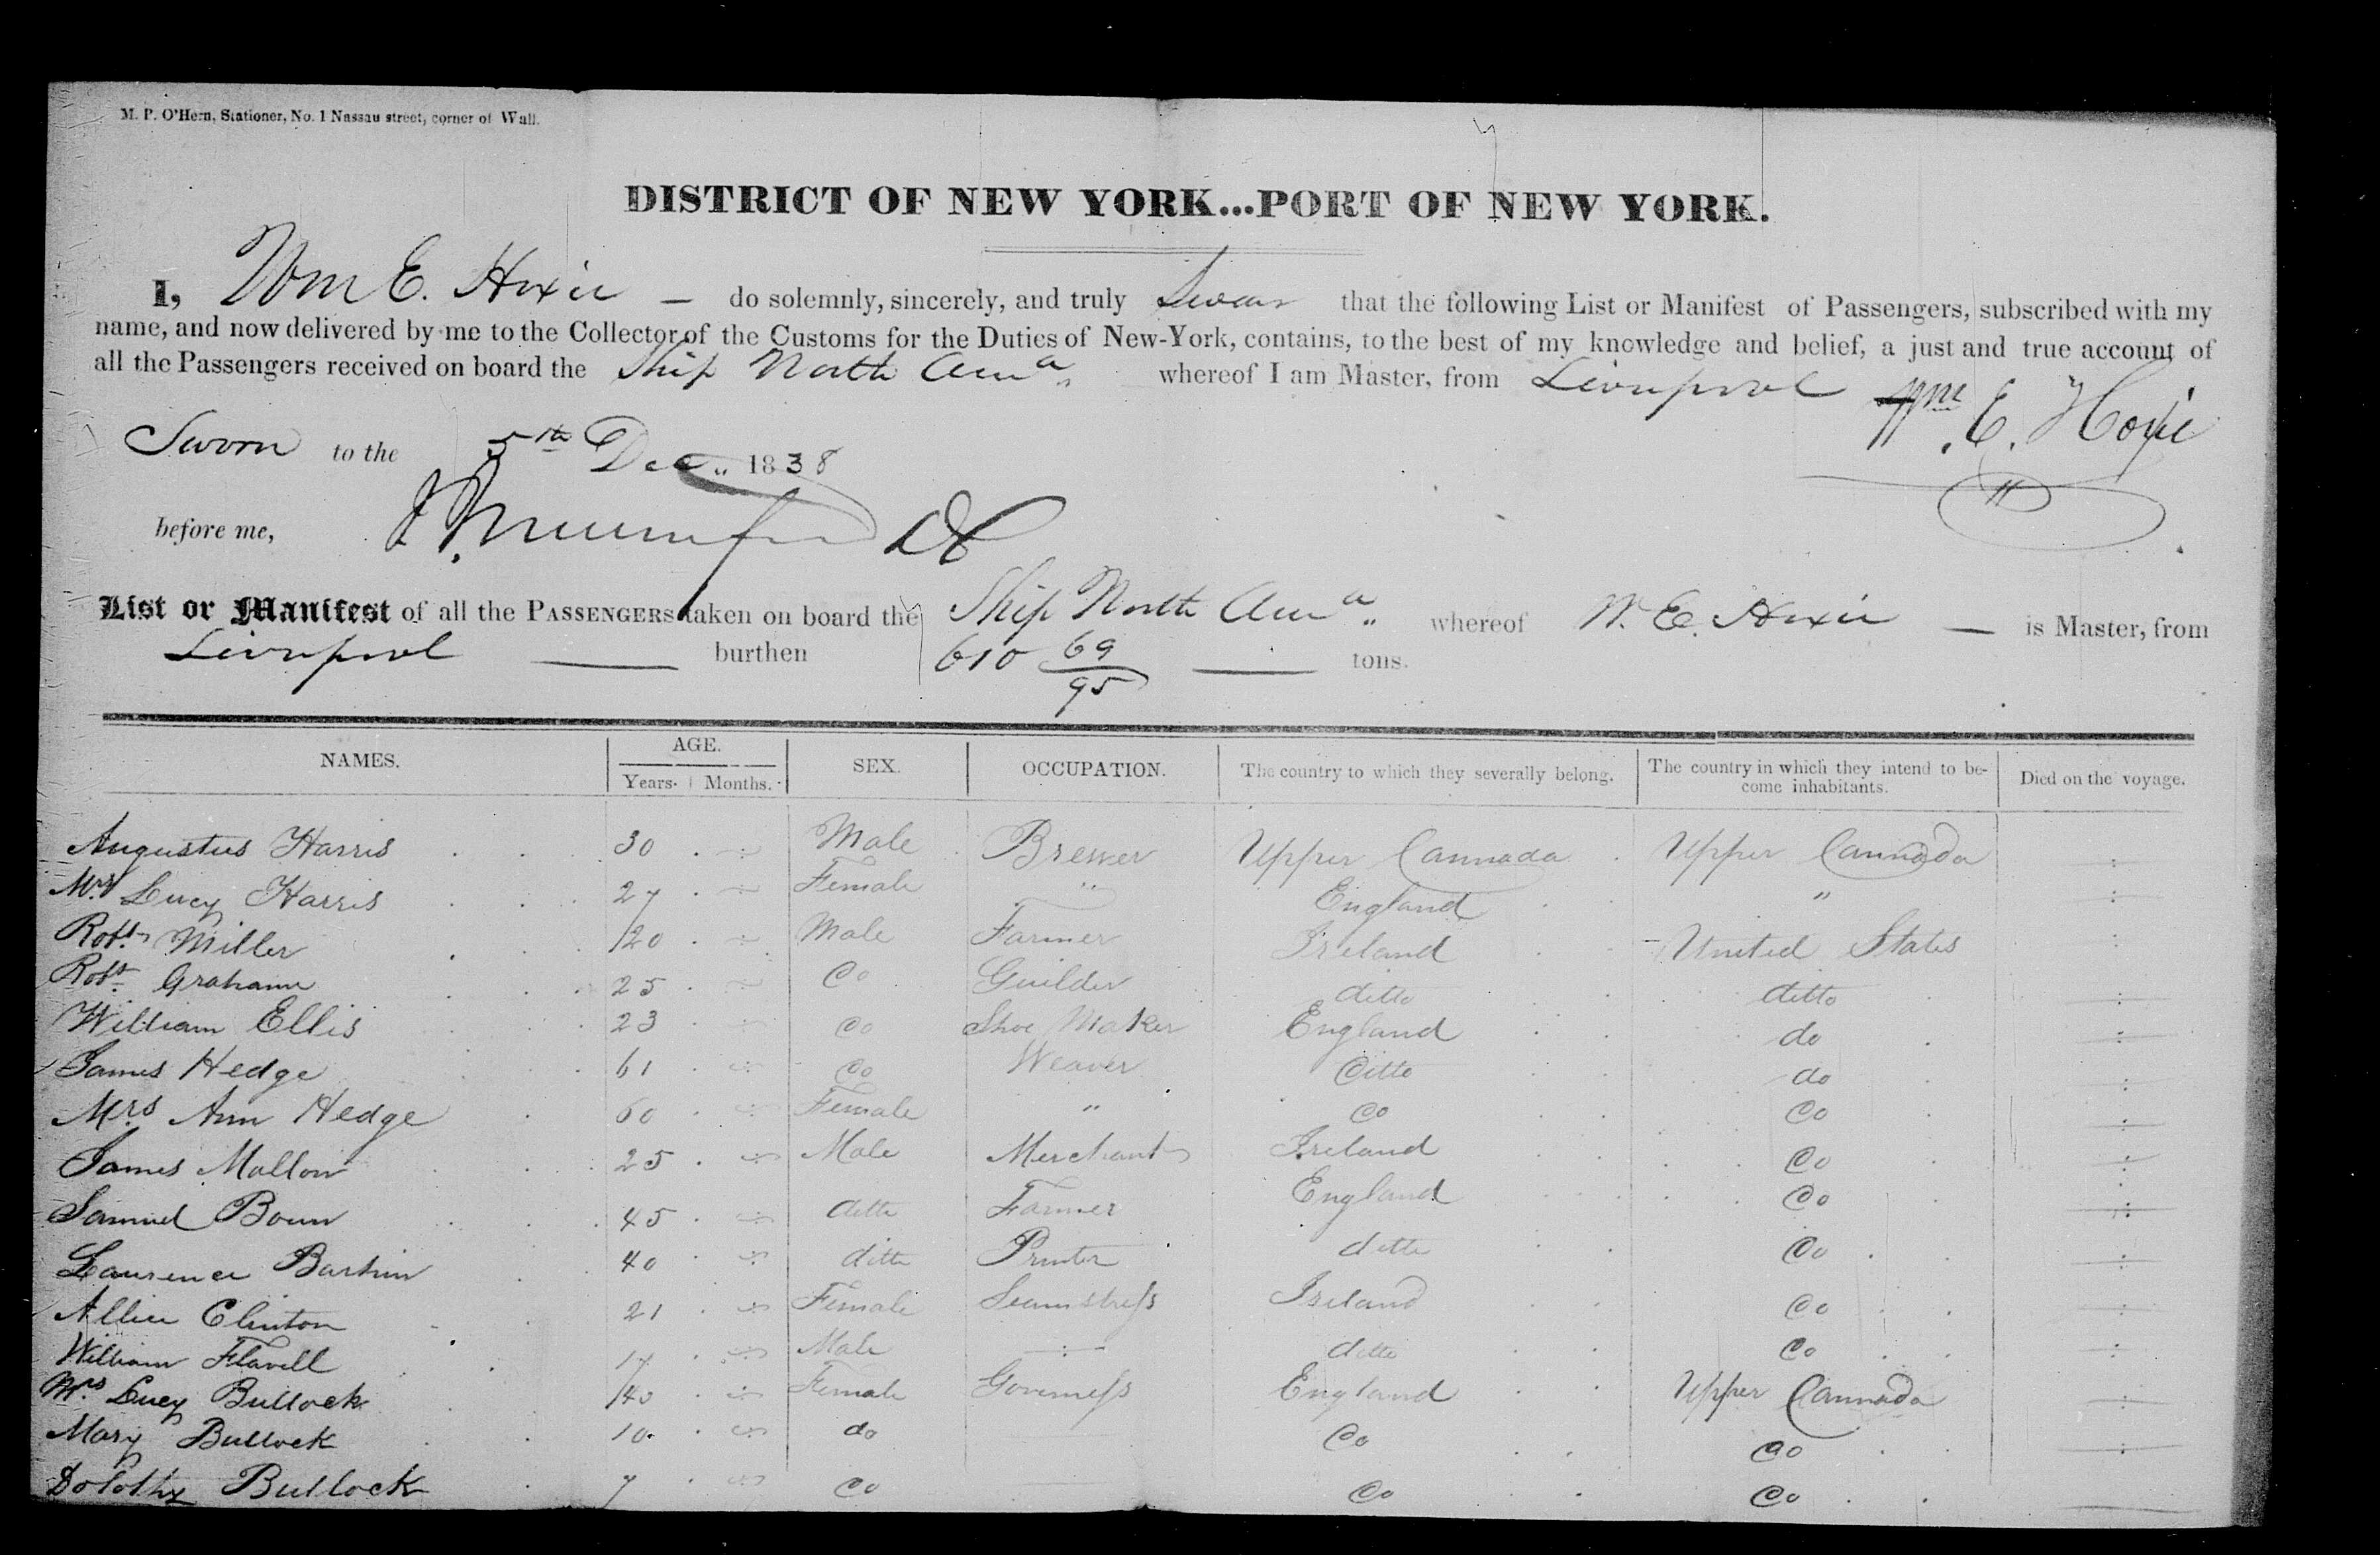 M. P. O'Hern, Stationer, No. 1 Nassau street, corner of Wall.
DISTRICT OF NEW YORK...PORT OF NEW YORK.
I, Wm E. Hoxie — do solemnly, sincerely, and truly Swear that the following List or Manifest of Passengers, subscribed with my
name, and now delivered by me to the Collector of the Customs for the Duties of New-York, contains, to the best of my knowledge and belief, a just and true account of
all the Passengers received on board the Ship North Ama. whereof I am Master, from Liverpool
Wm. E. Hoxie
Sworn to the 5th Dec 1838
before me,
List or Manifest of all the PASSENGERS taken on board the Ship North Ama whereof W. E. Hoxie — is Master, from
Liverpool — burthen 610 69/95 — tons.
NAMES. AGE. Years. Months. SEX. OCCUPATION. The country to which they severally belong. The country in which they intend to become inhabitants. Died on the voyage.
Augustus Harris 30 Male Brewer Upper Cannada Upper Cannada
Mrs Lucy Harris 27 Female " England "
Robt. Miller 20 Male Farmer Ireland United States
Robt. Graham 25 Do Guilder ditto ditto
William Ellis 23 Do Shoe Maker England do
James Hedge 61 Do Weaver Ditto do
Mrs Ann Hedge 60 Female " Do Do
James Mallon 25 Male Merchant Ireland Do
Samuel 45 ditto Farmer England Do
Laurence 40 ditto Printer ditto Do
Allice Clinton 21 Female Seamstress Ireland Do
William Flavell 17 Male ditto Do
Mrs Lucy Bullock 40 Female Governess England Upper Cannada
Mary Bullock 10 do Do Do
Dolothy Bullock 7 Do Do Do